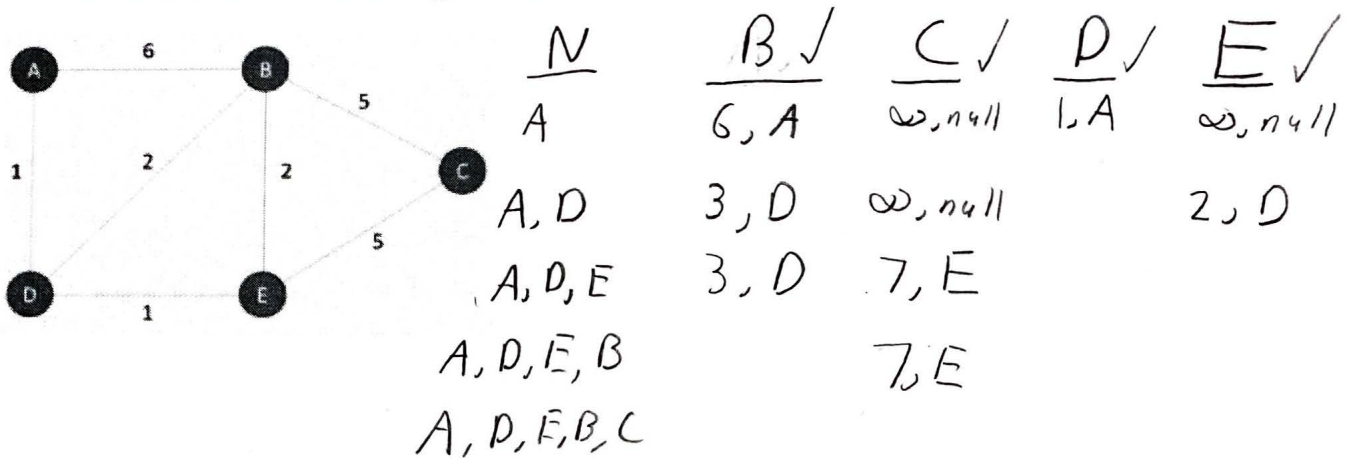 A 6 B
5
1 2 2
C
5
D 1 E
N B✓ C✓ D✓ E✓
A 6, A ∞, null 1, A ∞, null
A, D 3, D ∞, null 2, D
A, D, E 3, D 7, E
A, D, E, B 7, E
A, D, E, B, C